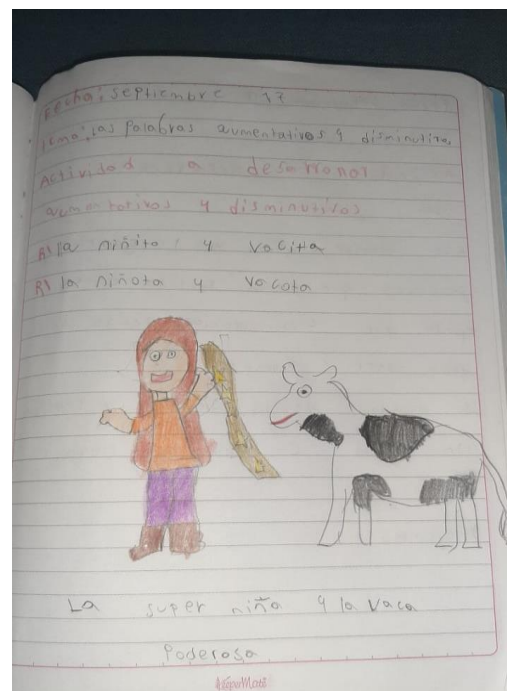 Fecha; septiembre 17
Tema; las palabras aumentativos y disminutivos
Actividad a desarrollar
aumentativos y disminutivos
R\ la niñita y vacita
R\ la niñota y vacota
La super niña y la vaca
Poderosa